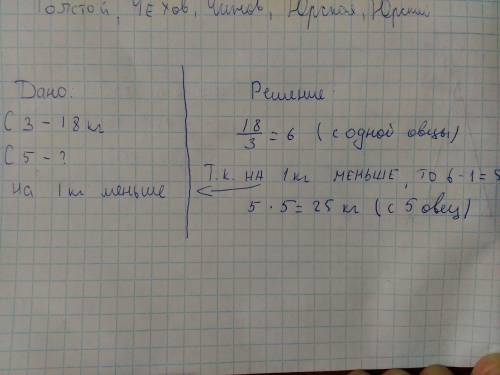 Толстой, Чехов, Чижов, Юрская, Юрский
Дано:
С 3 - 18 кг
С 5 - ?
на 1 кг меньше
Решение
18/3 = 6 (с одной овцы)
Т.к. на 1 кг меньше, то 6 - 1 = 5
5 · 5 = 25 кг (с 5 овец)